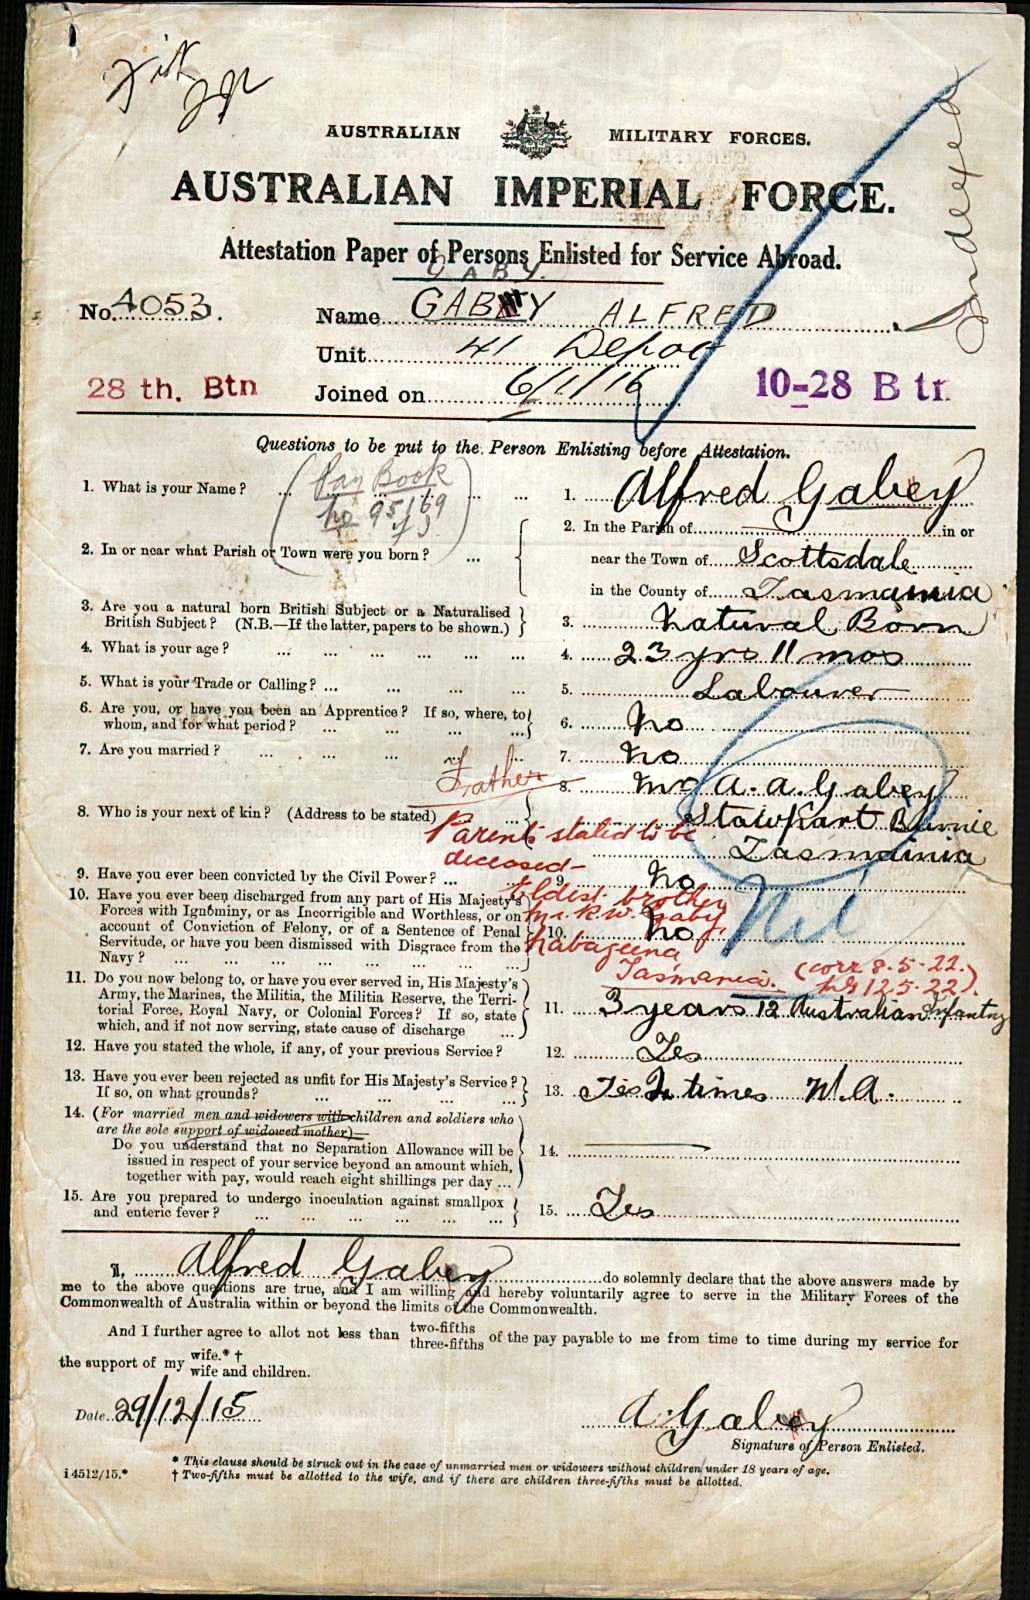 AUSTRALIAN MILITARY FORCES.
Indexed
AUSTRALIAN IMPERIAL FORCE.
Attestation Paper of Persons Enlisted for Service Abroad.
GABY.
No. 4053. Name GABY ALFRED
Unit 41 Depot
28 th. Btn Joined on 6/1/16 10-28 Btr.
Questions to be put to the Person Enlisting before Attestation.
(Pay Book
no 95169
1. What is your Name? ... ... ... 1. Alfred Gabey
2. In or near what Parish or Town were you born? ... 2. In the Parish of in or
near the Town of Scottsdale
in the County of Tasmainia
3. Are you a natural born British Subject or a Naturalised
British Subject? (N.B.—If the latter, papers to be shown.) 3. Natural Born
4. What is your age? ... ... ... ... ... ... 4. 23 yrs 11 mos
5. What is your Trade or Calling? ... ... ... ... 5. Labourer
6. Are you, or have you been an Apprentice? If so, where, to
whom, and for what period? ... ... ... ... 6. No
7. Are you married? ... ... ... ... 7. No
Father
8. Who is your next of kin? (Address to be stated) ... 8. A. A. Gabey
Burnie
Tasmainia
Parents stated to be
deceased—
9. Have you ever been convicted by the Civil Power? ... 9. No
Eldest brother
Mr. R. W. Gaby,
Nabageena
Tasmania. (corr 8.5.22.)
12.5.22).
Nil
10. Have you ever been discharged from any part of His Majesty's
Forces with Ignominy, or as Incorrigible and Worthless, or on
account of Conviction of Felony, or of a Sentence of Penal
Servitude, or have you been dismissed with Disgrace from the
Navy? ... ... ... ... ... ... 10. No
11. Do you now belong to, or have you ever served in, His Majesty's
Army, the Marines, the Militia, the Militia Reserve, the Terri-
torial Force, Royal Navy, or Colonial Forces? If so, state
which, and if not now serving, state cause of discharge ... 11. 3 years 12 Australian Infantry
12. Have you stated the whole, if any, of your previous Service? 12. Yes
13. Have you ever been rejected as unfit for His Majesty's Service?
If so, on what grounds? ... ... ... ... 13. Yes times W.A.
14. (For married men and widowers with children and soldiers who
are the sole support of widowed mother)—
Do you understand that no Separation Allowance will be
issued in respect of your service beyond an amount which,
together with pay, would reach eight shillings per day ... 14.
15. Are you prepared to undergo inoculation against smallpox
and enteric fever? ... ... ... ... ... ... 15. Yes
I, Alfred Gabey do solemnly declare that the above answers made by
me to the above questions are true, and I am willing and hereby voluntarily agree to serve in the Military Forces of the
Commonwealth of Australia within or beyond the limits of the Commonwealth.
And I further agree to allot not less than two-fifths three-fifths of the pay payable to me from time to time during my service for
the support of my wife.* † wife and children.
Date 29/12/15 A. Gabey
Signature of Person Enlisted.
i 4512/15.* * This clause should be struck out in the case of unmarried men or widowers without children under 18 years of age.
† Two-fifths must be allotted to the wife, and if there are children three-fifths must be allotted.